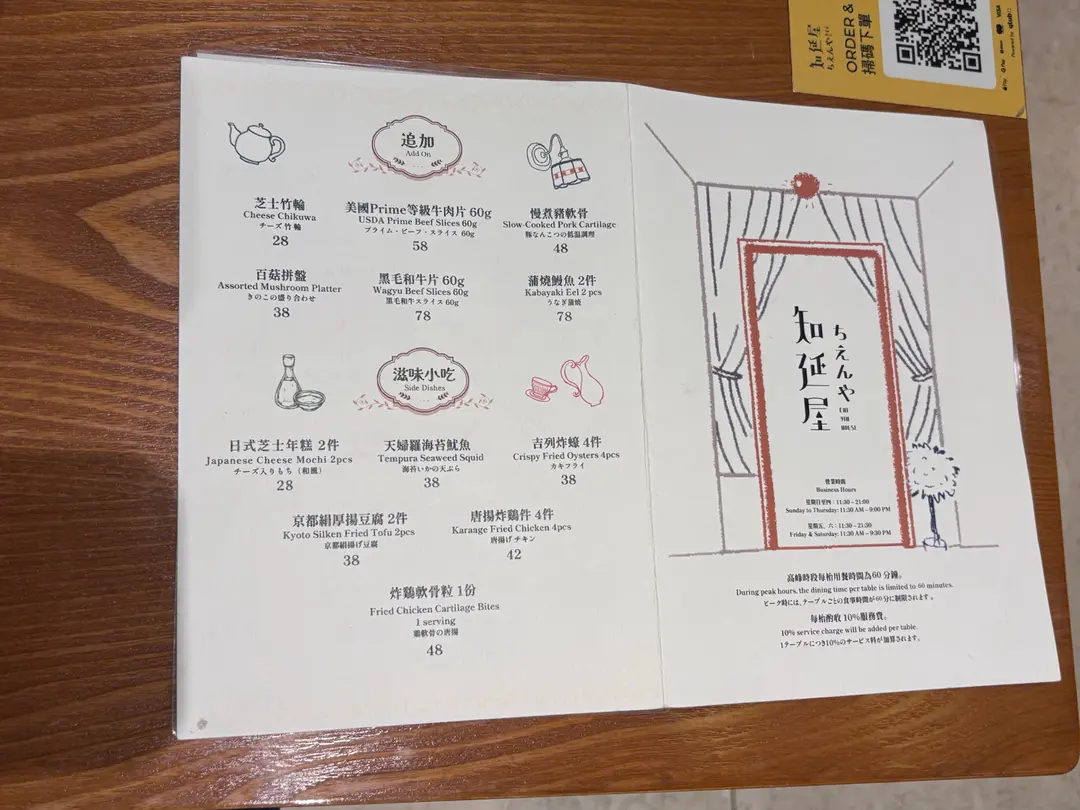 追加
Add On
芝士竹輪
Cheese Chikuwa
チーズ竹輪
28
美國Prime等級牛肉片 60g
USDA Prime Beef Slices 60g
プライム・ビーフ・スライス 60g
58
慢煮豬軟骨
Slow-Cooked Pork Cartilage
豚なんこつの低温調理
48
百菇拼盤
Assorted Mushroom Platter
きのこの盛り合わせ
38
黑毛和牛片 60g
Wagyu Beef Slices 60g
黒毛和牛スライス 60g
78
蒲燒鰻魚 2件
Kabayaki Eel 2 pcs
うなぎ蒲焼
78
滋味小吃
Side Dishes
日式芝士年糕 2件
Japanese Cheese Mochi 2pcs
チーズ入りもち（和風）
28
天婦羅海苔魷魚
Tempura Seaweed Squid
海苔いかの天ぷら
38
吉列炸蠔 4件
Crispy Fried Oysters 4pcs
カキフライ
38
京都絹厚揚豆腐 2件
Kyoto Silken Fried Tofu 2pcs
京都絹揚げ豆腐
38
唐揚炸鷄件 4件
Karaage Fried Chicken 4pcs
唐揚げチキン
42
炸鷄軟骨粒 1份
Fried Chicken Cartilage Bites
1 serving
鶏軟骨の唐揚
48
知延屋
ちえんや
CHI
YIN
HOUSE
營業時間
Business Hours
星期日至四：11:30 - 21:00
Sunday to Thursday: 11:30 AM – 9:00 PM
星期五、六：11:30 - 21:30
Friday & Saturday: 11:30 AM – 9:30 PM
高峰時段每枱用餐時間為60分鐘。
During peak hours, the dining time per table is limited to 60 minutes.
ピーク時には、テーブルごとの食事時間が60分に制限されます。
每枱酌收10%服務費。
10% service charge will be added per table.
1テーブルにつき10%のサービス料が加算されます。
知延屋
ちえんや
ORDER &
掃碼下單
VISA
Powered by